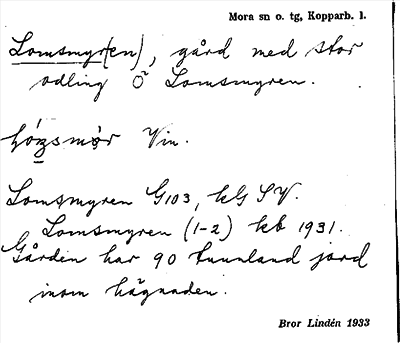 Mora sn o. tg, Kopparb. l.
Lomsmyr(en), gård med stor
odling Ö Lomsmyren.
Vin.
Lomsmyren G103, kG SV.
Lomsmyren (1-2) kb 1931.
Gården har 90 tunnland jord
inom hägnaden.
Bror Lindén 1933